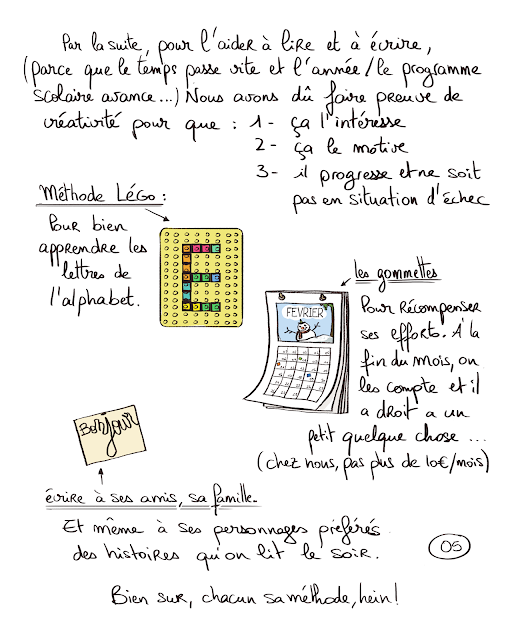 Par la suite, pour l'aider à lire et à écrire,
(parce que le temps passe vite et l'année/le programme
scolaire avance...) Nous avons dû faire preuve de
créativité pour que : 1- ça l'intéresse
2- ça le motive
3- il progresse et ne soit
pas en situation d'échec
Méthode LéGo :
Pour bien
apprendre les
lettres de
l'alphabet.
E
les gommettes
FEVRIER
Pour Récompenser
ses efforts. A la
fin du mois, on
les compte et il
a droit a un
petit quelque chose ...
(chez nous, pas plus de 10€/mois)
Bonjour
écrire à ses amis, sa famille.
Et même à ses personnages préférés
des histoires qu'on lit le soir.
05
Bien sur, chacun sa méthode, hein!